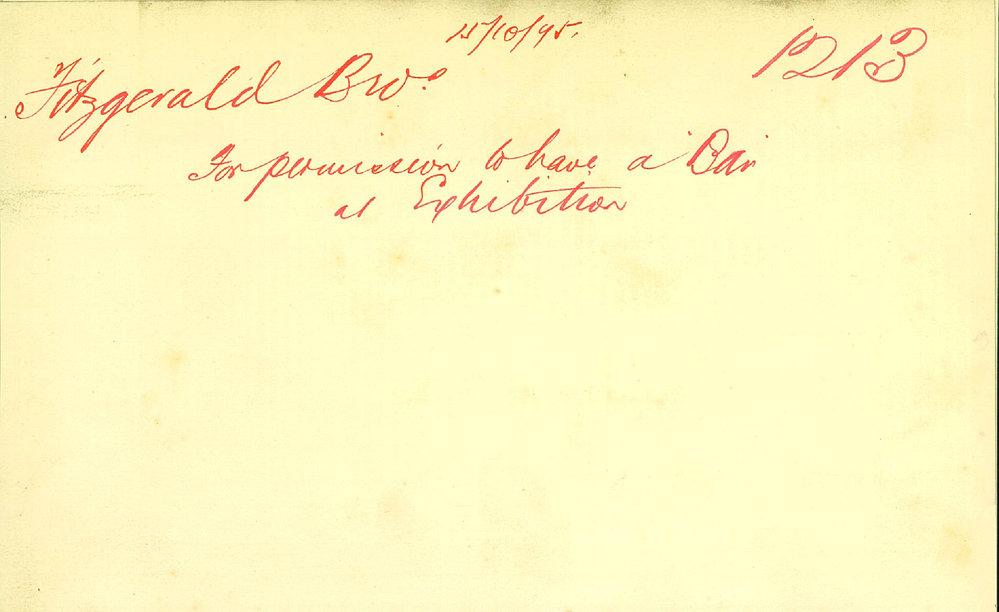 4/10/95.
1213
Fitzgerald Bros
For permission to have a Bar
at Exhibition